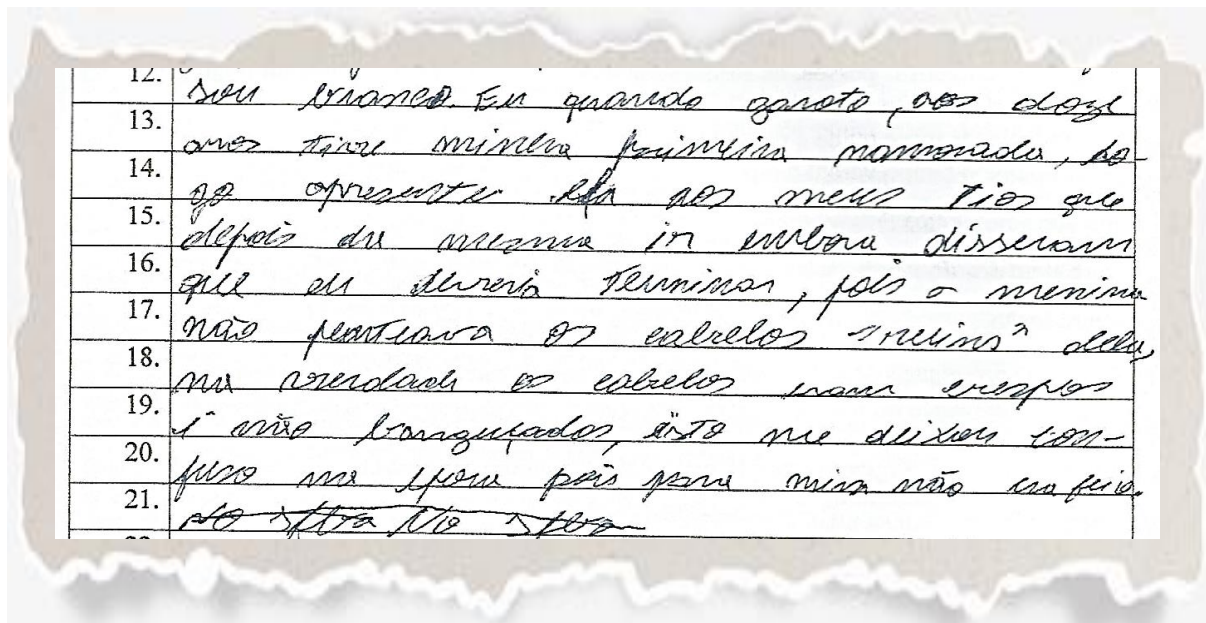 12.
sou branco. Eu quando garoto, aos doze
13.
anos tive minha primeira namorada, lo-
14.
go apresente ela aos meus tios que
15.
depois da mesma ir embora disseram
16.
que eu deveria terminar, pois a menina
17.
não penteava os cabelos "ruins" dela,
18.
na verdade os cabelos eram crespos
19.
e não bagunçados, isto me deixou con-
20.
fuso na epoca pois para mim não era feio.
21.